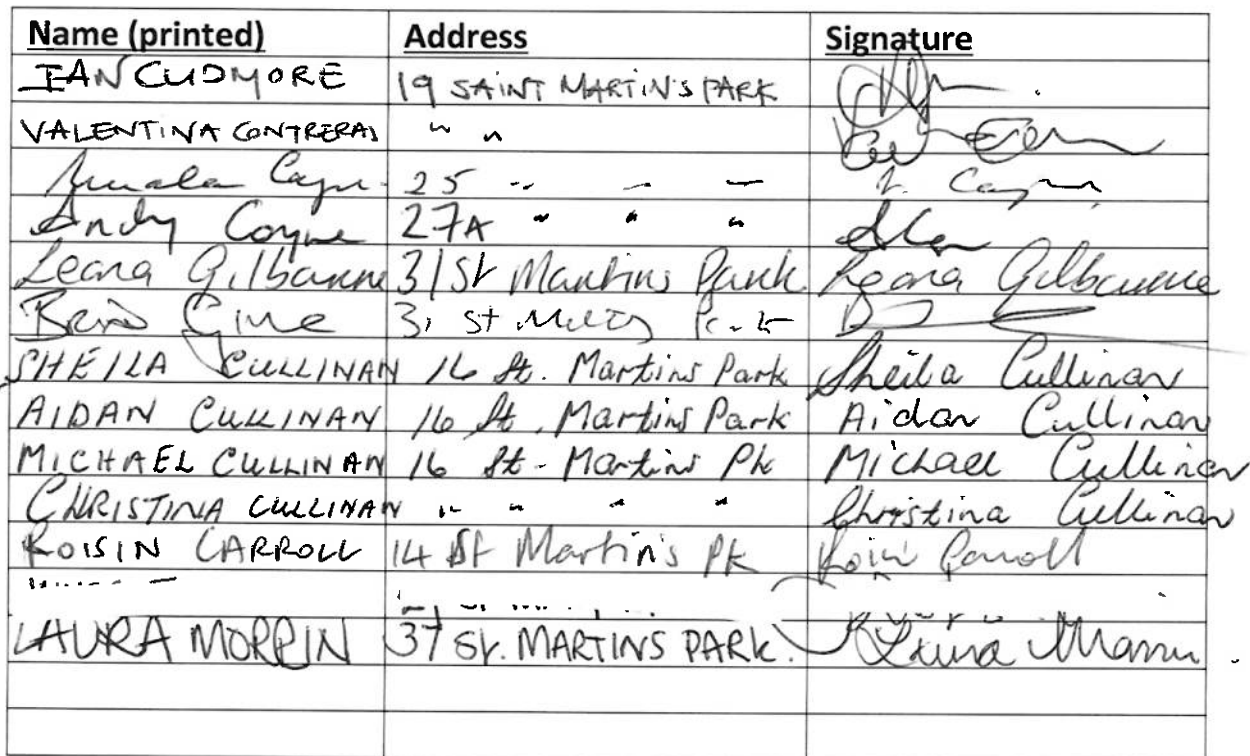 Name (printed) Address Signature
IAN CUDMORE 19 SAINT MARTIN'S PARK
VALENTINA CONTRERAS " "
25 " " "
Andy Coyne 27A " " "
Leona Gilbourne 31 St Martins Park Leona Gilbourne
31 St
SHEILA CULLINAN 16 St. Martins Park Sheila Cullinan
AIDAN CULLINAN 16 St. Martins Park Aidan Cullinan
MICHAEL CULLINAN 16 St. Martins Pk Michael Cullinan
CHRISTINA CULLINAN " " " " Christina Cullinan
ROISIN CARROLL 14 St Martin's Pk Roisin Carroll
LAURA 37 St. MARTINS PARK. Laura